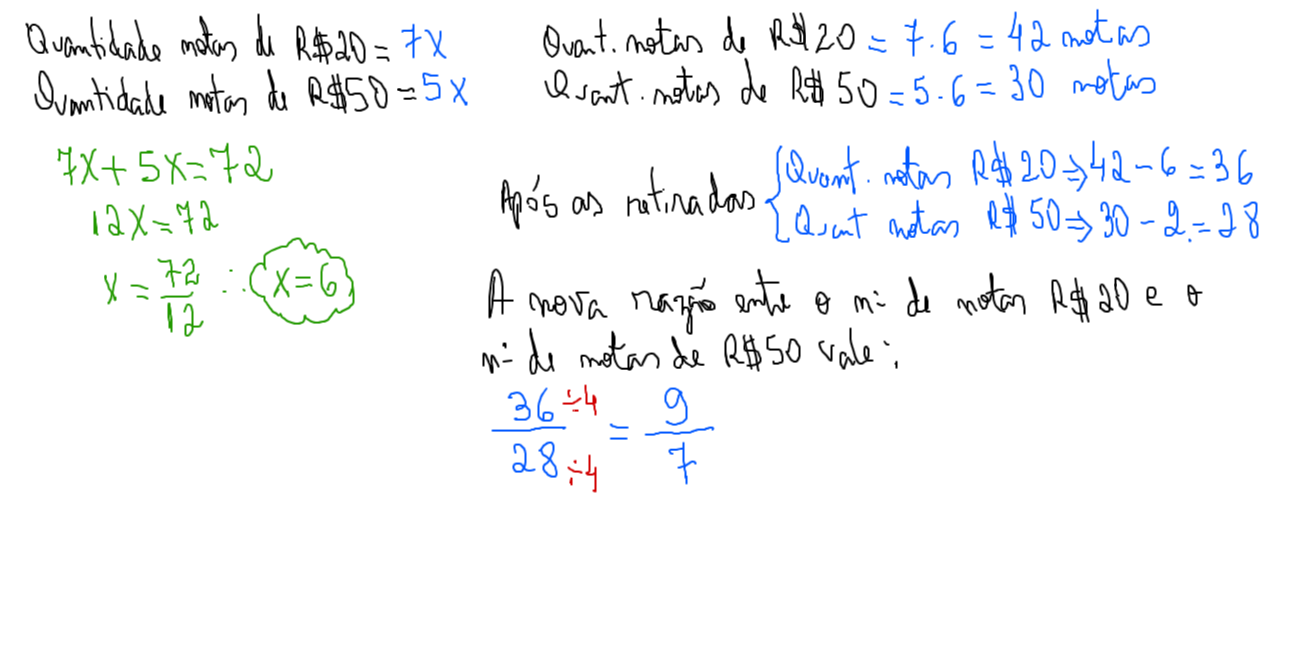 Quantidade notas de R$20 = 7x
Quantidade notas de R$50 = 5x
7x + 5x = 72
12x = 72
x = 72/12 ∴ x = 6
Quant. notas de R$20 = 7.6 = 42 notas
Quant. notas de R$50 = 5.6 = 30 notas
Após as retiradas { Quant. notas R$20 ⇒ 42 - 6 = 36
Quant notas R$50 ⇒ 30 - 2 = 28
A nova razão entre o nº de notas R$20 e o
nº de notas de R$50 vale:
36 ÷4 / 28 ÷4 = 9/7